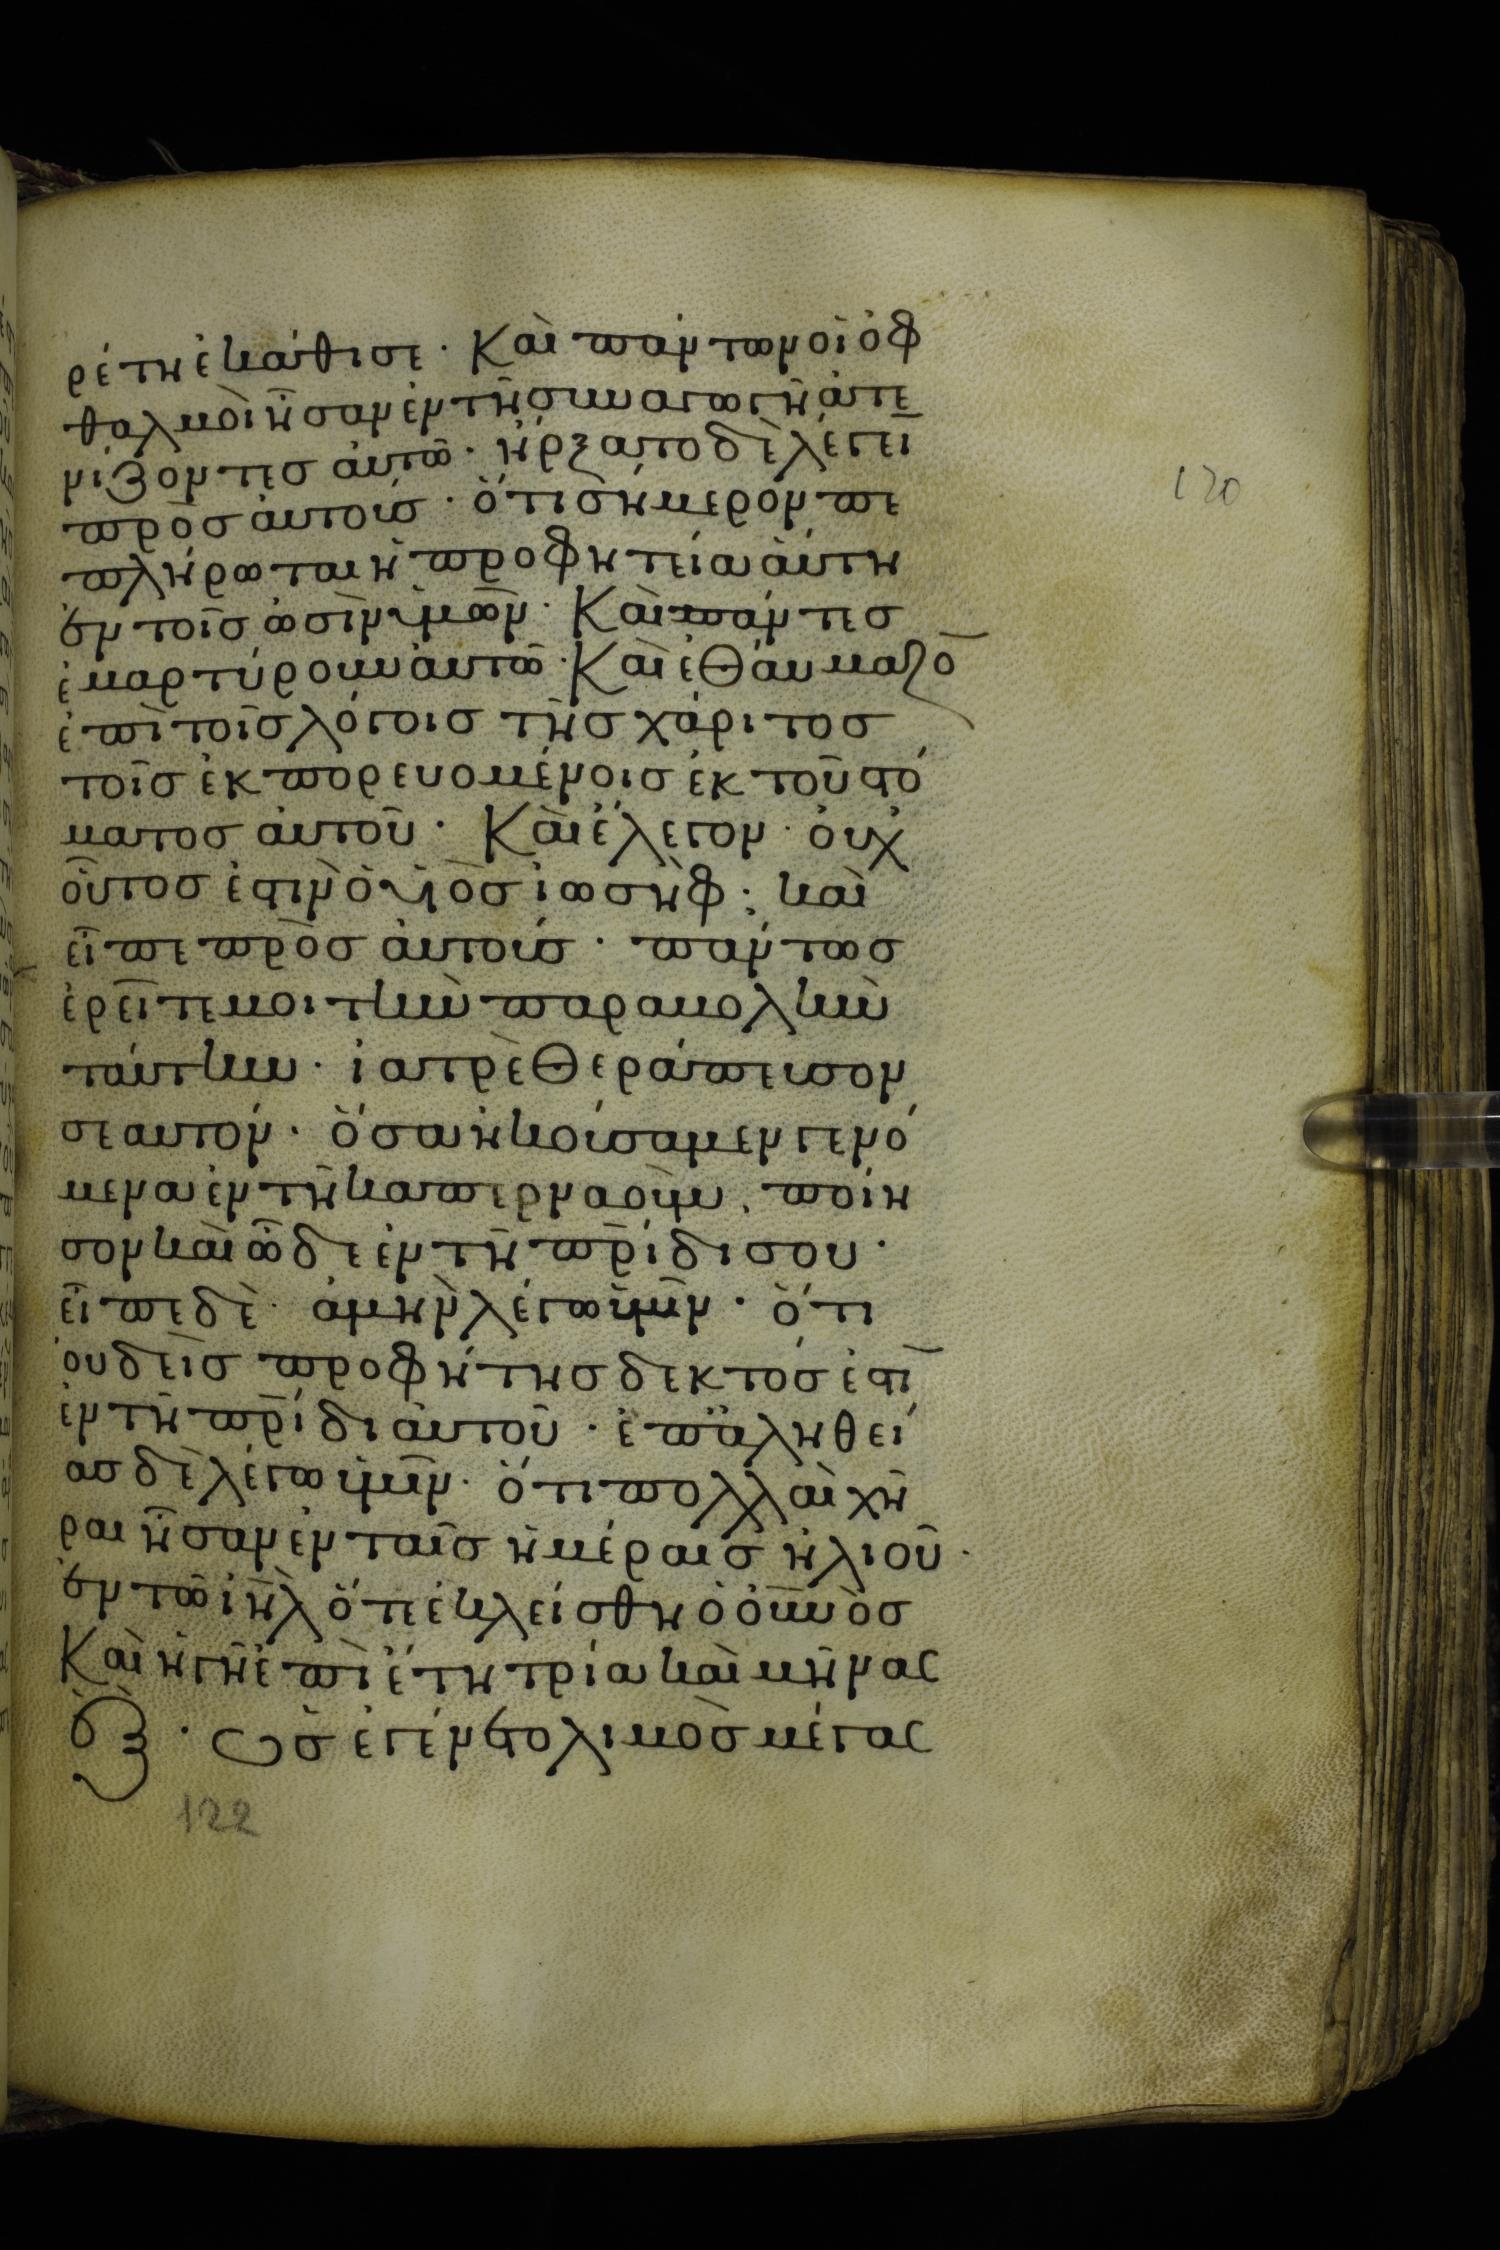 ρέτη ἐκάθισε · Καὶ πάντων οἱ ὀφ
θαλμοὶ ἦσαν ἐν τῆ συναγωγῆ ἀτε
νίζοντες αὐτῶ · ἤρξατο δὲ λέγει
πρὸσ αὐτούσ · ὅτι σήμερον πε
πλήρωται ἡ προφητεία αὕτη
ἐν τοῖσ ὠσὶν ὑμῶν · Καὶ πάντεσ
ἐμαρτύρουν αὐτῶ · Καὶ ἐθαύμαζο̅
ἐπὶ τοῖσ λόγοισ τῆσ χάριτοσ
τοῖσ ἐκπορευομένοισ ἐκ τοῦ στό
ματοσ αὐτοῦ · Καὶ ἔλεγον · οὐχ
οὗτοσ ἐστὶν ὁ υ̅ὸσ ἰωσὴφ ; καὶ
εἶπε πρὸσ αὐτούσ · πάντωσ
ἐρεῖτε μοι τὴν παραβολὴν
ταύτην · ἰατρὲ θεράπευσον
σεαυτόν · ὅσα ἠκούσαμεν γενό
μενα ἐν τῆ καπερναοὺμ, ποίη
σον καὶ ὧδε ἐν τῆ π̅ρίδι σου ·
εἶπε δὲ · ἀμὴν λέγω ὑμῖν · ὅτι
οὐδεὶσ προφήτησ δεκτόσ ἐστι̅
ἐν τῆ π̅ρίδι αὐτοῦ · ἐπ ἀληθεί
ασ δὲ λέγω ὑμῖν · ὅτι πολλαὶ χῆ
ραι ἦσαν ἐν ταῖσ ἡμέραισ ἠλιοῦ ·
ἐν τῶ ἰη̅λ ὅτε ἐκλείσθη ὁ ο̅υ̅νὸσ
Καὶ ἡ γῆ ἐπὶ ἔτη τρία καὶ μῆνας
ἕξ · ὡσ ἐγένετο λιμὸσ μέγας
120
122